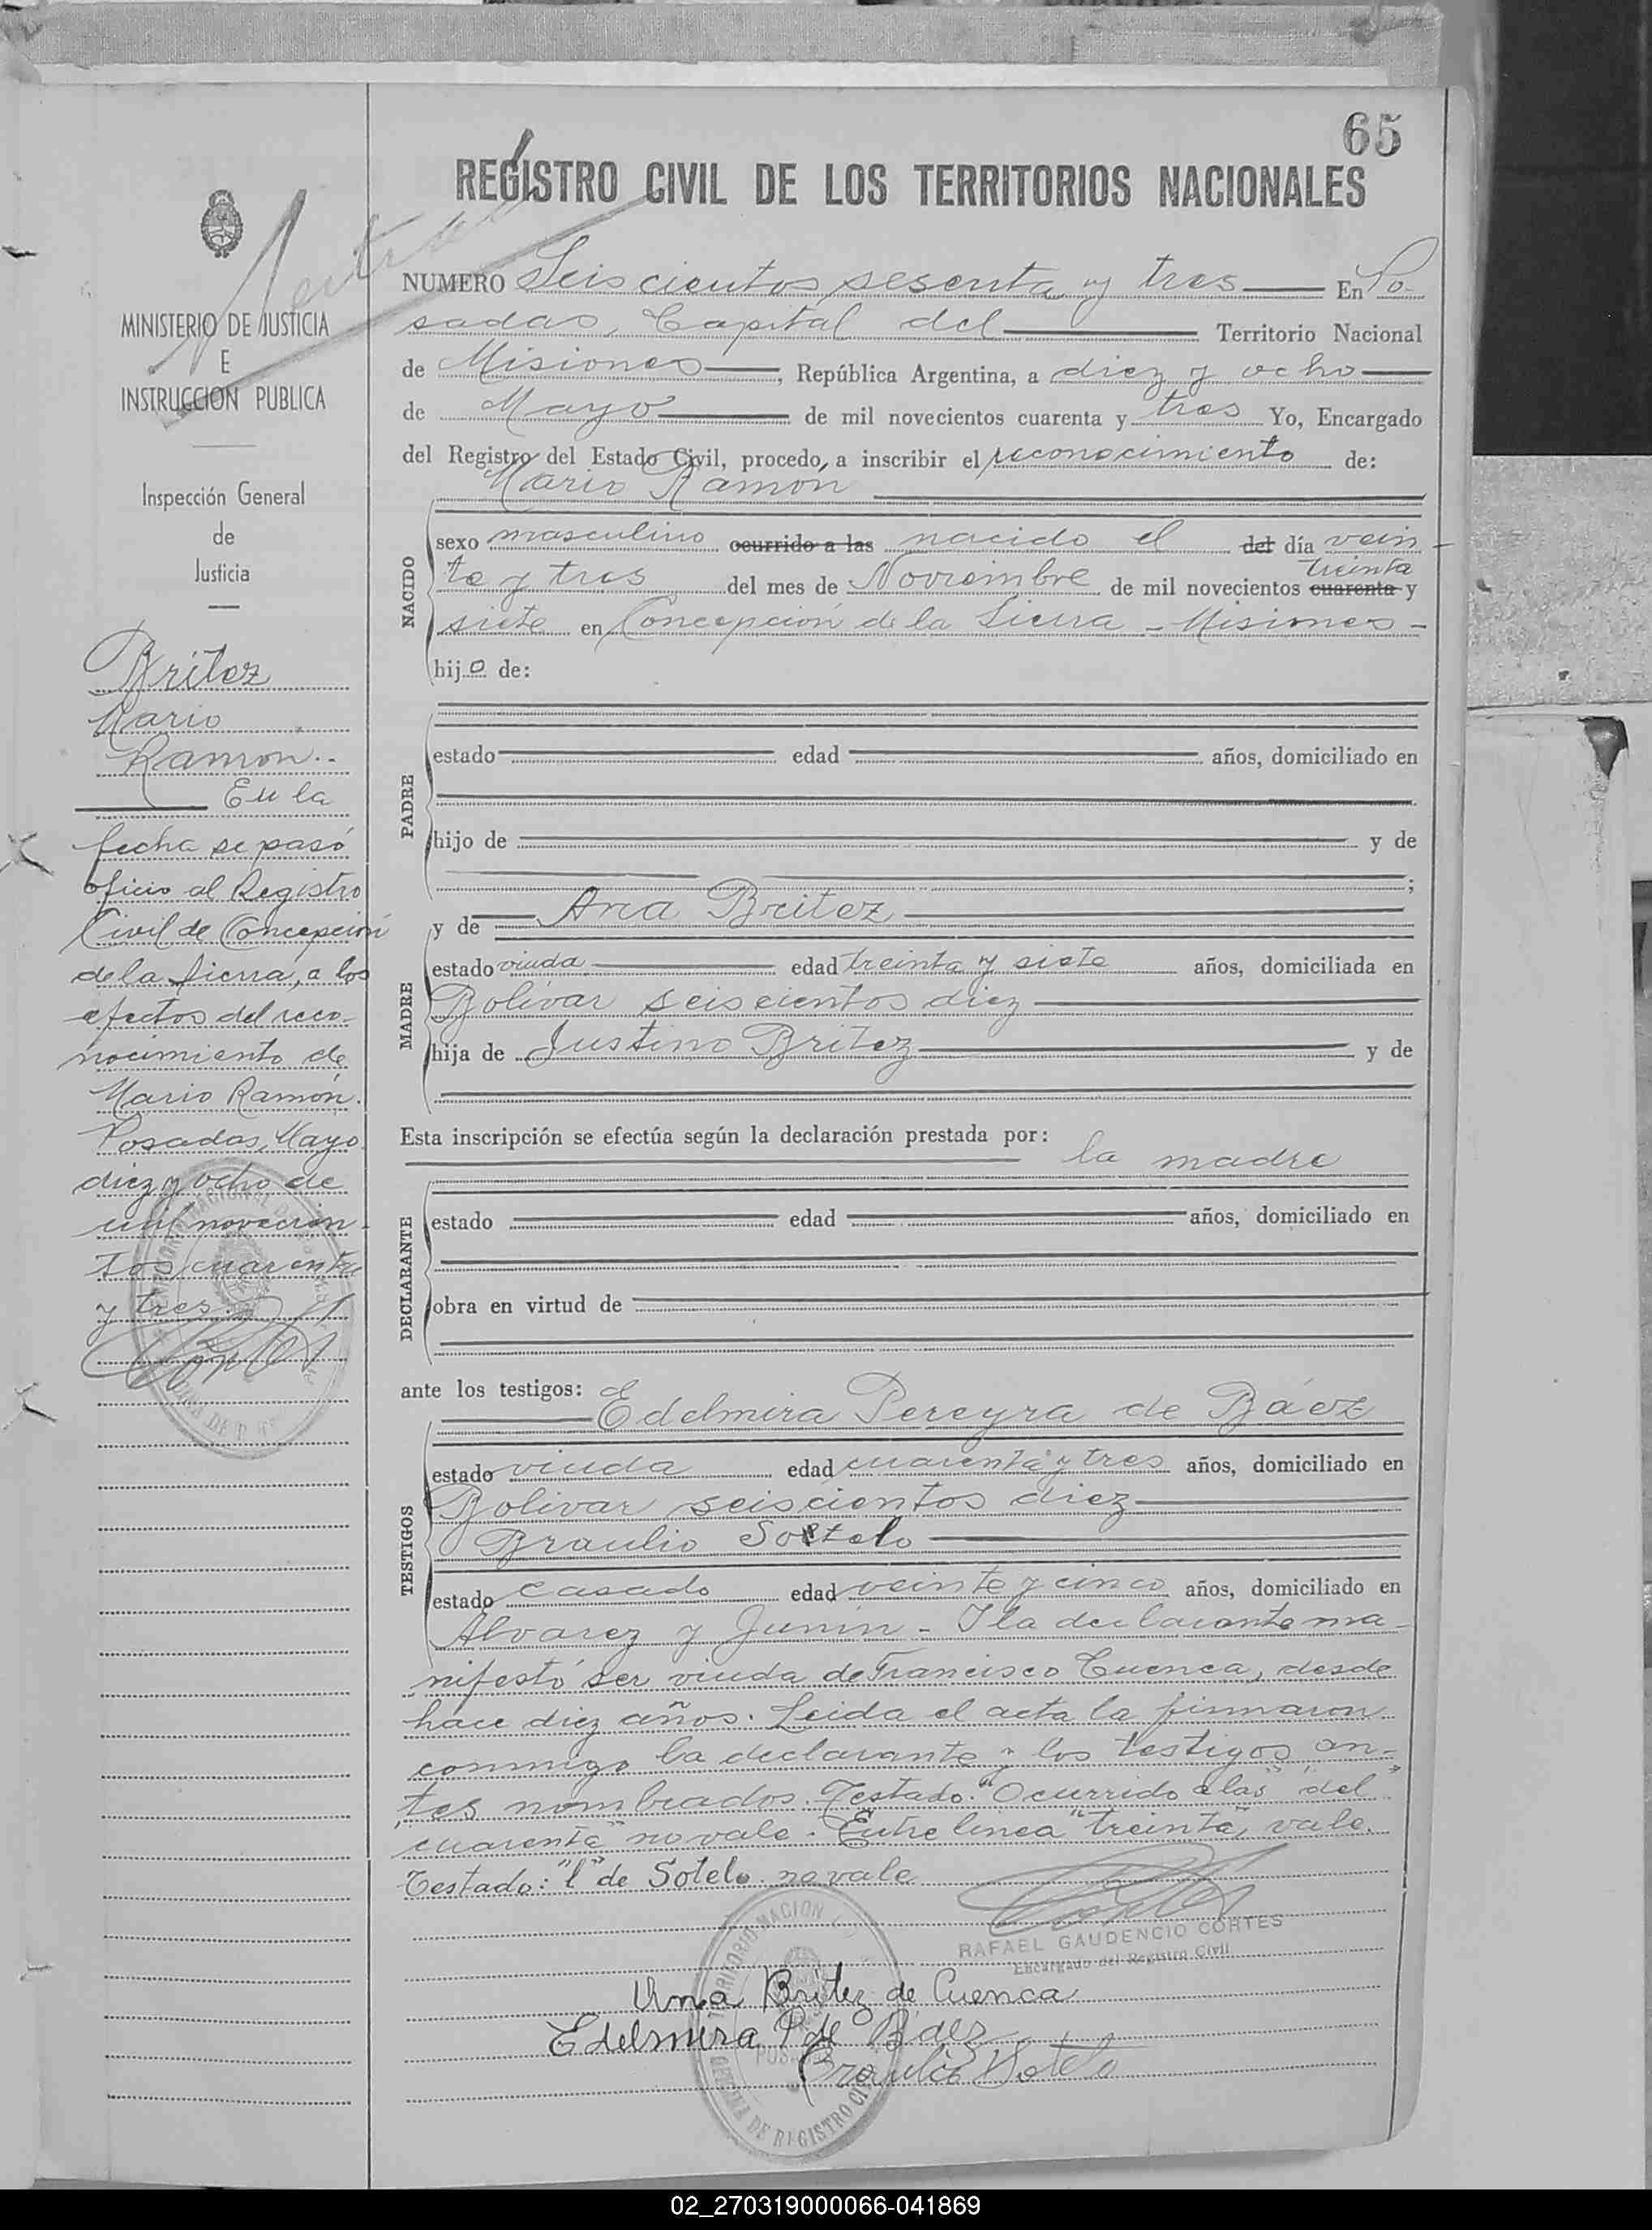 65
REGISTRO CIVIL DE LOS TERRITORIOS NACIONALES
MINISTERIO DE JUSTICIA
E
INSTRUCCION PUBLICA
Inspección General
de
Justicia
Britez
Mario
Ramon..
En la
fecha se pasó
oficio al Registro
Civil de Concepción
de la Sierra, a los
efectos del reco-
nocimiento de
Mario Ramón.
Posadas, Mayo
diez y ocho de
mil novecien-
tos cuarenta
y tres.
NUMERO Seiscientos sesenta y tres En Po-
sadas, Capital del Territorio Nacional
de Misiones, República Argentina, a diez y ocho
de Mayo de mil novecientos cuarenta y tres Yo, Encargado
del Registro del Estado Civil, procedo, a inscribir el reconocimiento de:
Mario Ramon
NACIDO
sexo masculino ocurrido a las nacido el del día vein-
treinta
te y tres del mes de Noviembre de mil novecientos cuarenta y
siete en Concepción de la Sierra - Misiones -
hijo de:
PADRE
estado edad años, domiciliado en
hijo de y de
;
MADRE
y de Ana Britez
estado viuda edad treinta y siete años, domiciliada en
Bolívar seiscientos diez
hija de Justino Britez y de
Esta inscripción se efectúa según la declaración prestada por:
la madre
DECLARANTE
estado edad años, domiciliado en
obra en virtud de
ante los testigos:
Edelmira Pereyra de Báez
TESTIGOS
estado viuda edad cuarenta y tres años, domiciliado en
Bolivar seiscientos diez
Braulio Sotelo
estado casado edad veinte y cinco años, domiciliado en
Alvarez y Junín - Y la declarante ma-
nifestó ser viuda de Francisco Cuenca, desde
hace diez años. Leida el acta la firmaron
conmigo la declarante y los testigos an-
tes nombrados. Testado: "Ocurrido a las" "del"
"cuarenta" no vale. Entre linea "treinta", vale.
Testado: "l" de Sotelo no vale
RAFAEL GAUDENCIO CORTES
Encargado del Registro Civil
Ana Britez de Cuenca
Edelmira P de Báez
Braulio Sotelo
02_270319000066-041869